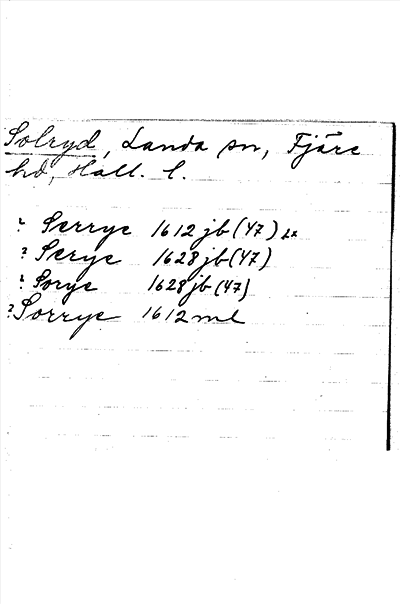 Solryd, Landa sn, Fjäre
hd, Hall. l.
? Serrye 1612 jb (47)
? Serye 1628 jb (47)
? Sorye 1628 jb (47)
? Sorrye 1612 ml